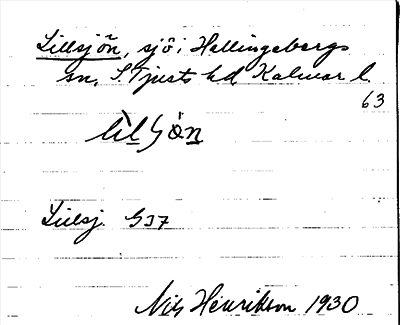 Lillsjön, sjö i Hallingebergs
sn, S. Tjusts hd Kalmar l.
63
Lillsj. G37
Nils Henrikson 1930